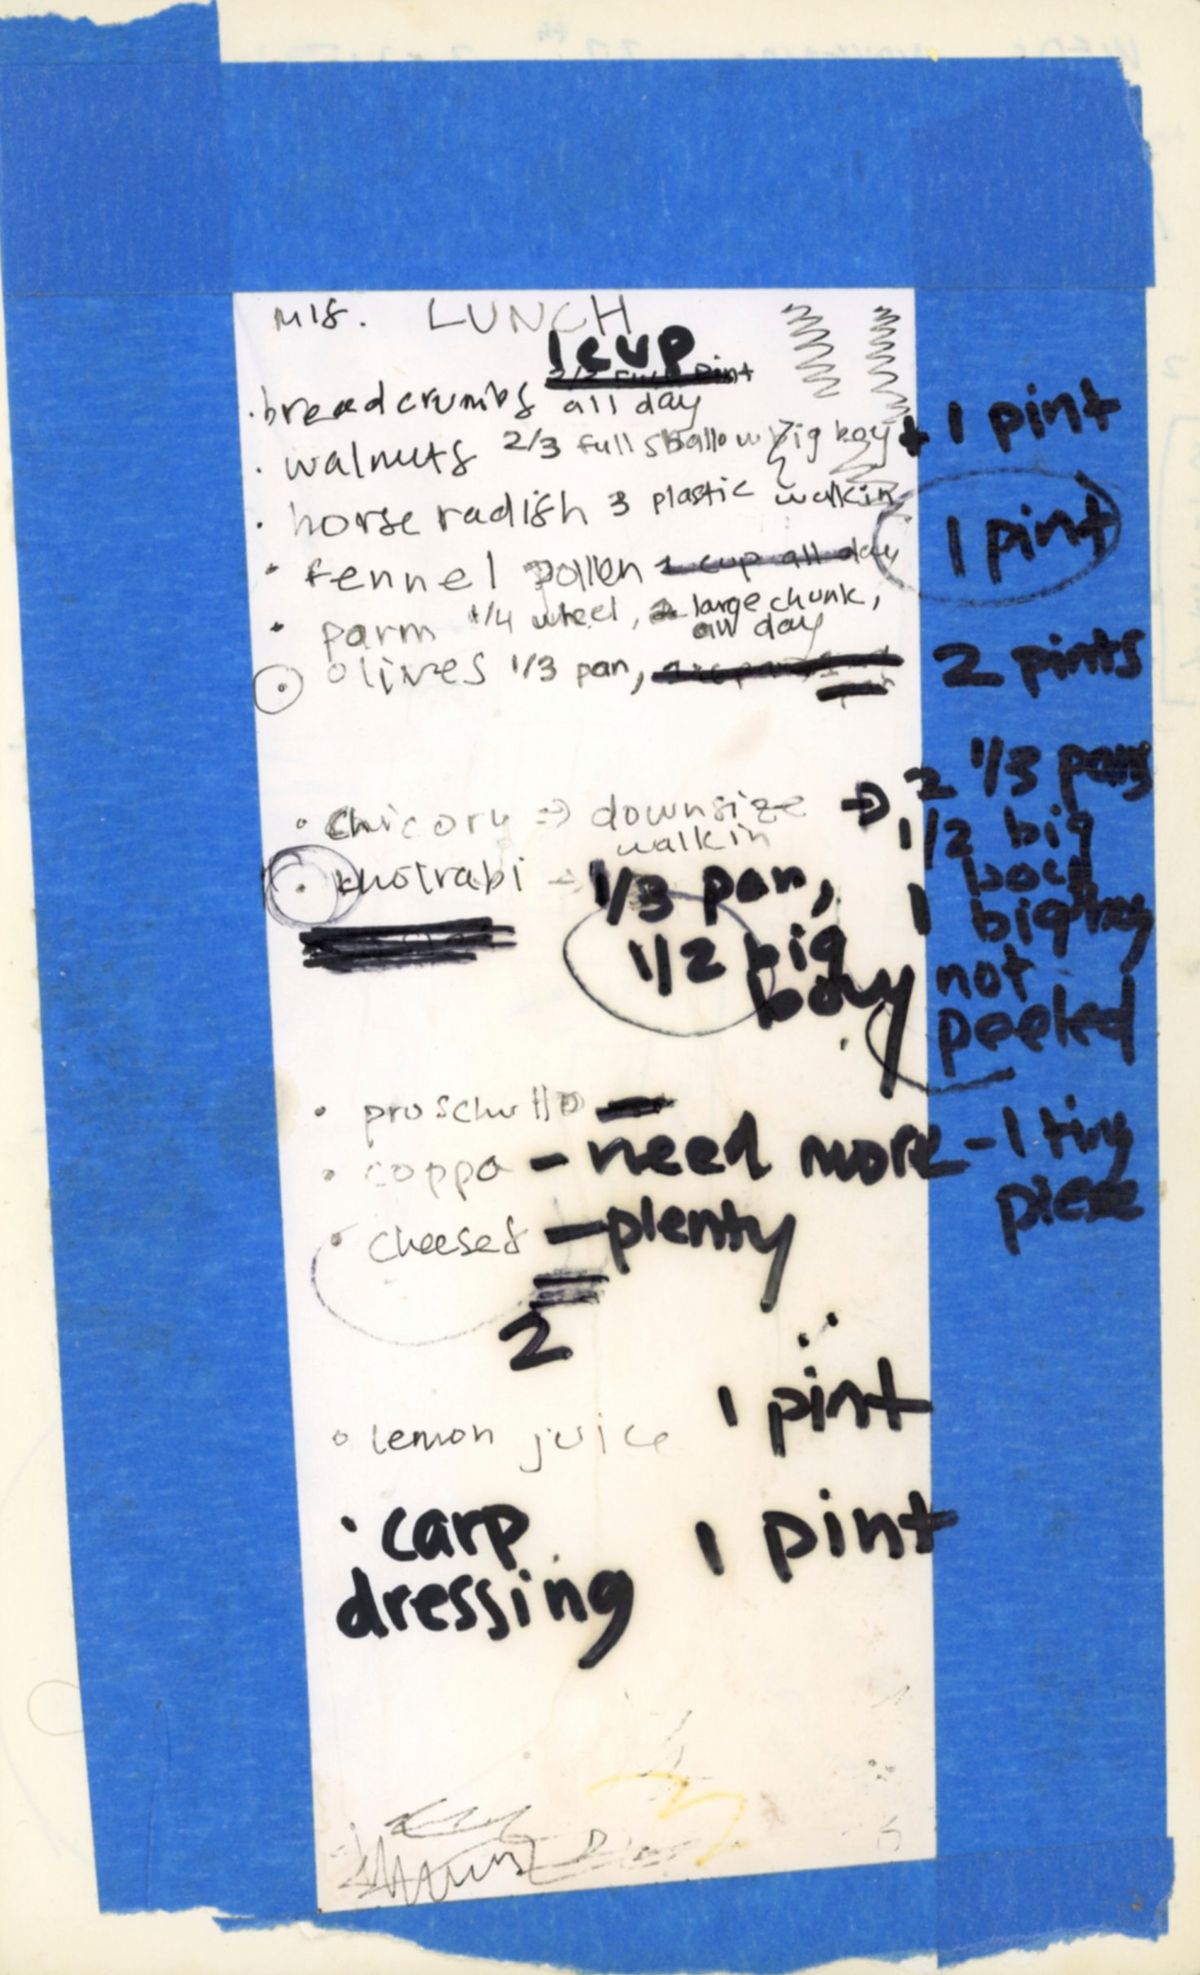 MIS. LUNCH
1 cup
• breadcrumbs all day
• walnuts 2/3 full shallow big boy + 1 pint
• horse radish 3 plastic walkin
• fennel pollen 1 cup all day 1 pint
• parm 1/4 wheel, 2 large chunk,
all day
• olives 1/3 pan, 2 pints
• chicory → downsize → 2 1/3 pans
walkin 1/2 big
boy
• kholrabi → 1/3 pan, 1 big boy
1/2 big not
boy peeled
• proschutto
• coppa - need more - 1 tiny
piece
• cheeses - plenty
2
• lemon juice 1 pint
• carp 1 pint
dressing